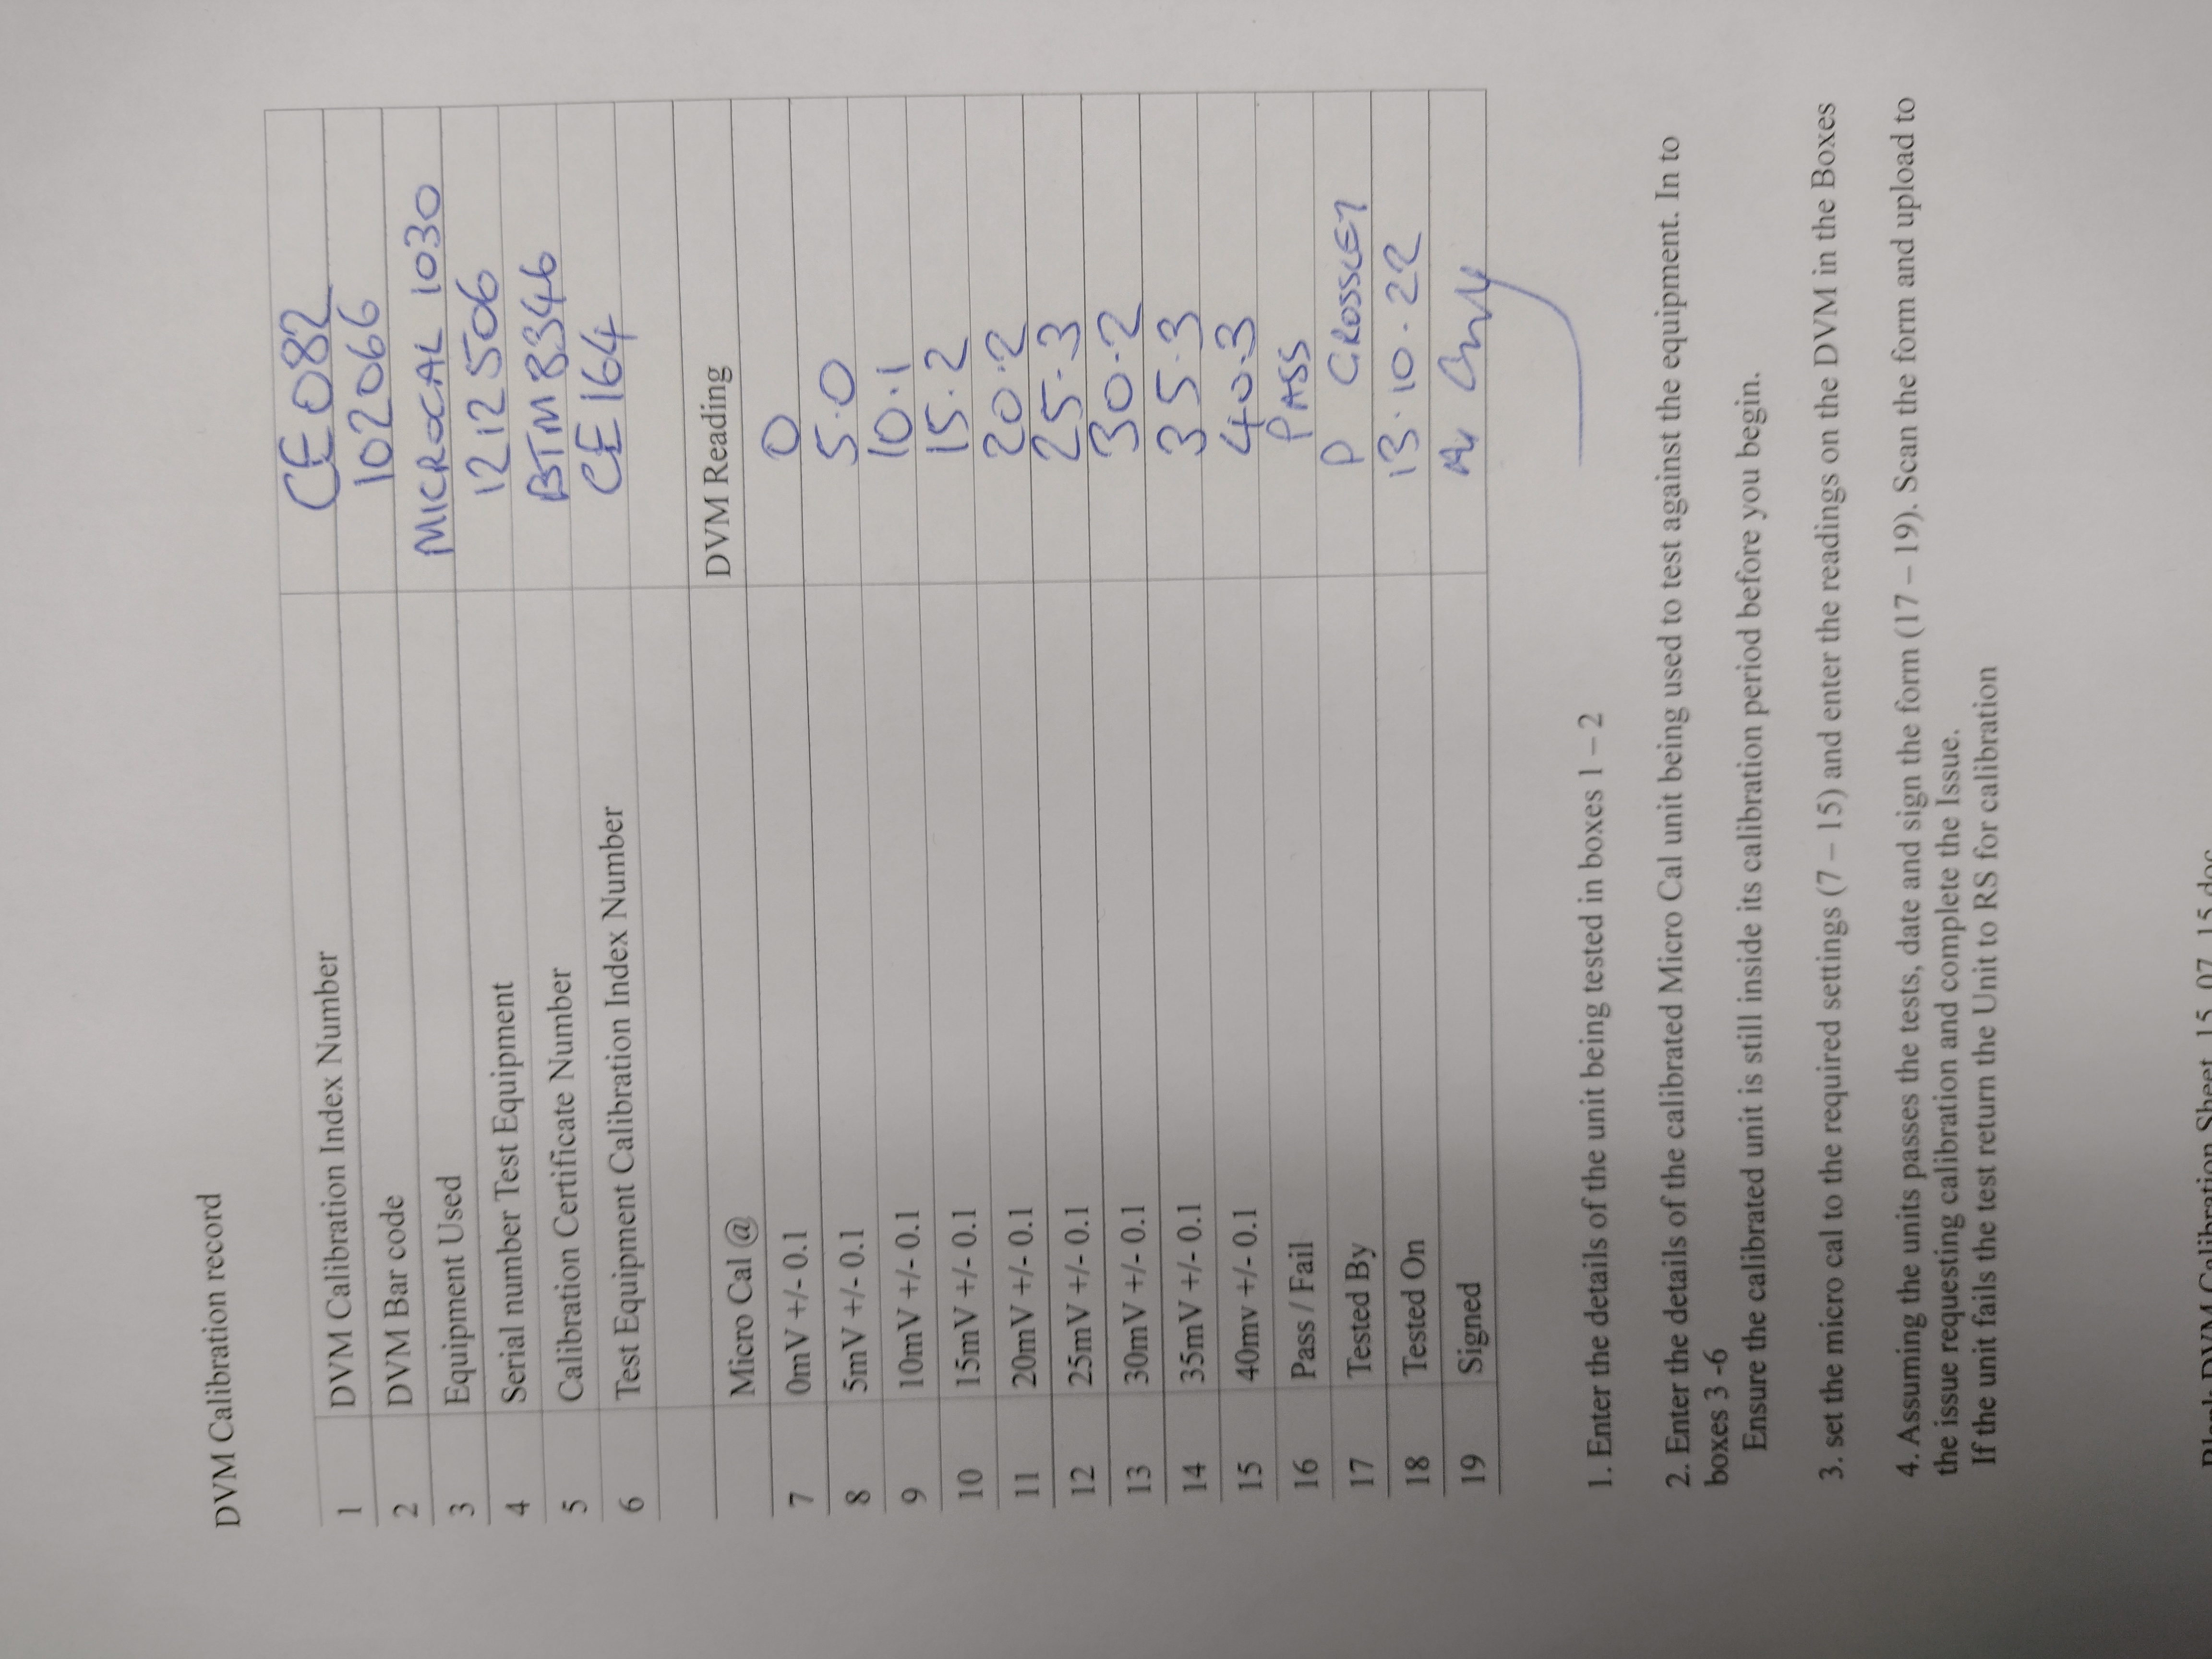 DVM Calibration record
1 DVM Calibration Index Number CE082
2 DVM Bar code 102066
3 Equipment Used MICROCAL 1030
4 Serial number Test Equipment 1212506
5 Calibration Certificate Number BTM8346
6 Test Equipment Calibration Index Number CE164
Micro Cal @ DVM Reading
7 0mV +/- 0.1 0
8 5mV +/- 0.1 5.0
9 10mV +/- 0.1 10.1
10 15mV +/- 0.1 15.2
11 20mV +/- 0.1 20.2
12 25mV +/- 0.1 25.3
13 30mV +/- 0.1 30.2
14 35mV +/- 0.1 35.3
15 40mv +/- 0.1 40.3
16 Pass / Fail PASS
17 Tested By P CROSSLEY
18 Tested On 13.10.22
19 Signed
1. Enter the details of the unit being tested in boxes 1 – 2
2. Enter the details of the calibrated Micro Cal unit being used to test against the equipment. In to
boxes 3 -6
Ensure the calibrated unit is still inside its calibration period before you begin.
3. set the micro cal to the required settings (7 – 15) and enter the readings on the DVM in the Boxes
4. Assuming the units passes the tests, date and sign the form (17 – 19). Scan the form and upload to
the issue requesting calibration and complete the Issue.
If the unit fails the test return the Unit to RS for calibration
Blank DVM Calibration Sheet 15_07_15.doc